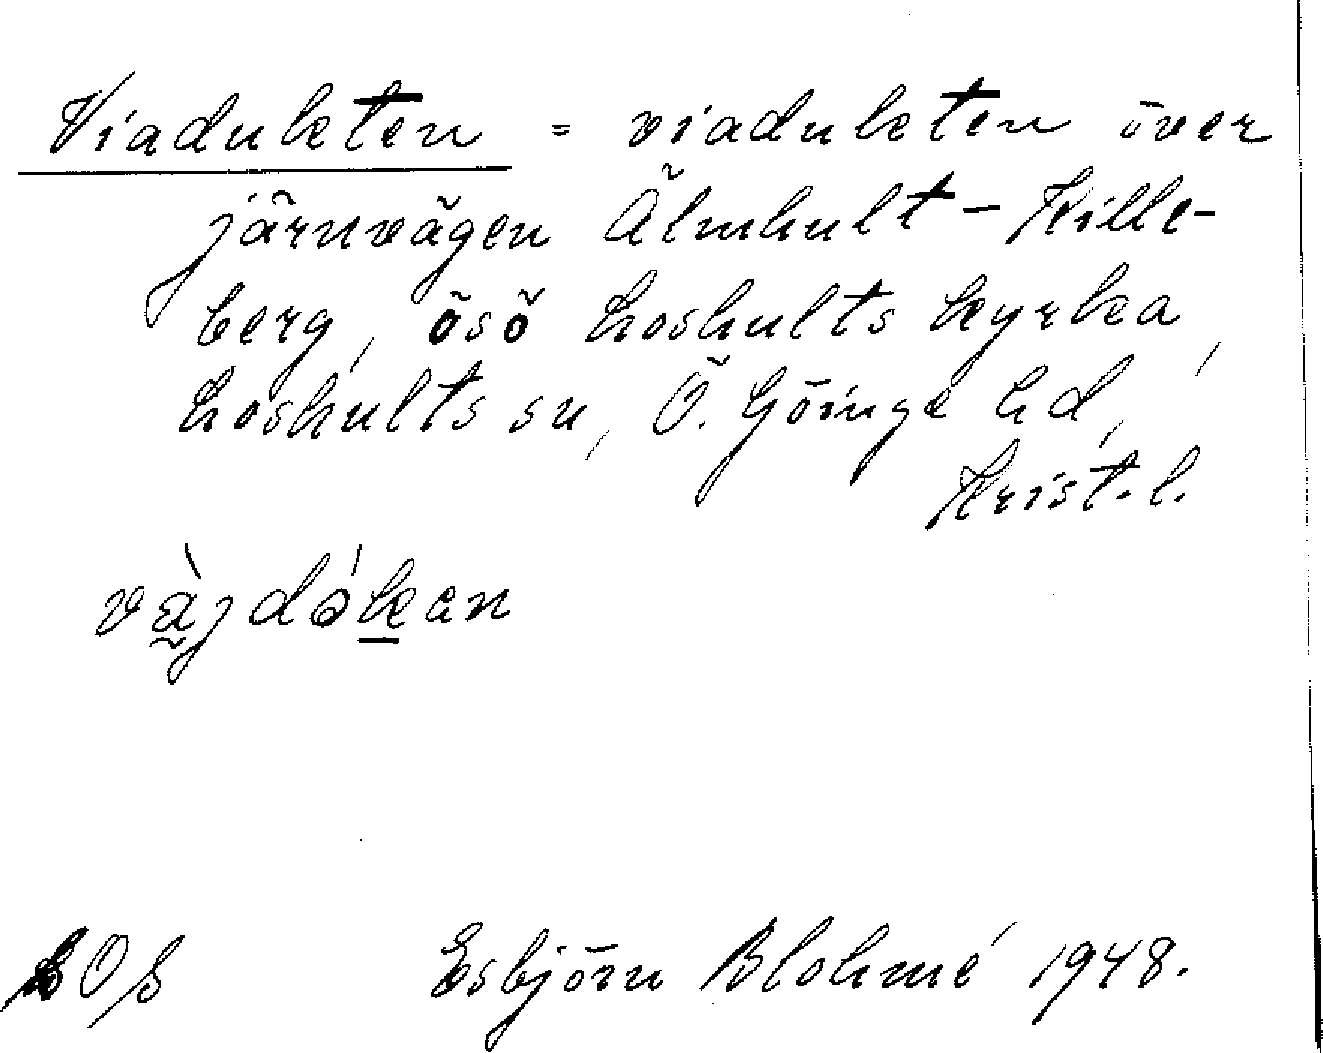 Viadukten = viadukten över
järnvägen Älmhult - Kille-
berg, ösö Loshults kyrka,
Loshults sn, Ö. Göinge hd,
Krist. l.
vàjdákan
Esbjörn Blohmé 1948.